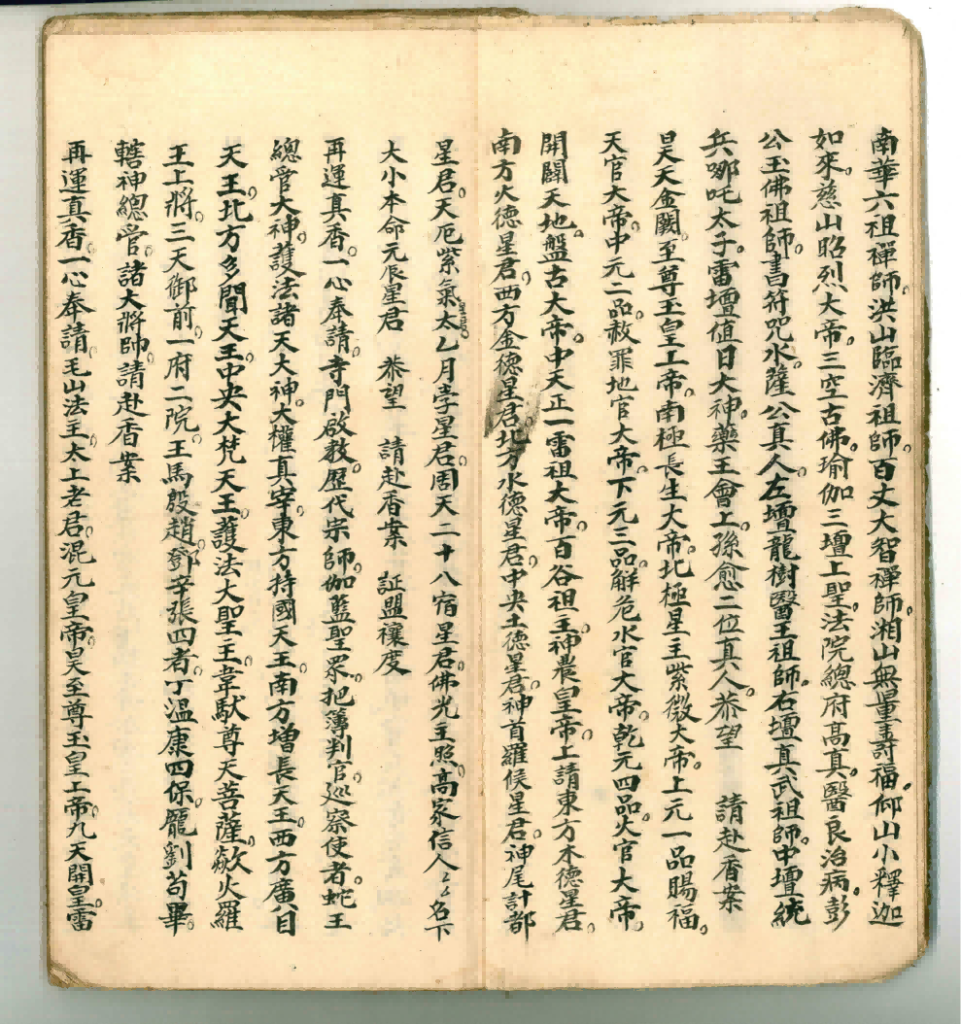 南華六祖禪師。洪山臨濟祖師。百丈大智禪師。湘山無量壽福。仰山小釋迦
如來。慈山昭烈大帝。三空古佛。瑜伽三壇上聖。法院總府高真。醫良治病。彭
公玉佛祖師。書符咒水。薩公真人。左壇龍樹醫王祖師。右壇真武祖師。中壇統
兵哪吒太子。雷壇值日大神。藥王會上。孫愈二位真人。恭望 請赴香案
昊天金闕。至尊玉皇上帝。南極長生大帝。北極星主紫微大帝。上元一品賜福。
天官大帝。中元二品。赦罪地官大帝。下元三品。解危水官大帝。乾元四品。火官大帝。
開闢天地。盤古大帝。中天正一雷祖大帝。百谷祖王。神農皇帝。上請東方木德星君。
南方火德星君。西方金德星君。北方水德星君。中央土德星君。神首羅㬋星君。神尾計都
星君。天厄紫氣太乙月孛星君。周天二十八宿星君。佛光主照。高家信人ミ名下
大小本命元辰星君 恭望 請赴香案 証盟禳度
再運真香。一心奉請。寺門啟教。歷代宗師。伽藍聖眾。把簿判官。巡察使者。蛇王
總管大神。護法諸天大神。大權真宰。東方持國天王。南方增長天王。西方廣目
天王。北方多聞天王。中央大梵天王。護法大聖王。韋馱尊天菩薩。欻火羅
王上將。三天御前。一府二院。王馬殷趙。鄧辛張四者。丁溫康四保。龐劉苟畢。
轄神總管。諸大將帥。請赴香案
再運真香。一心奉請。毛山法主。太上老君。混元皇帝。昊至尊玉皇上帝。九天開皇。雷